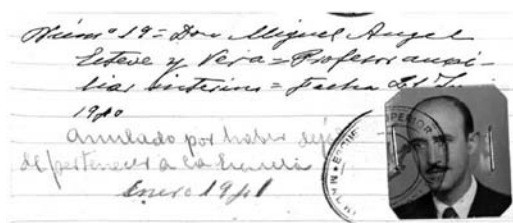 Núm.º 19 = Don Miguel Angel
Esteve y Vera = Profesor auxi-
liar interino = Fecha
1940
anulado por haber deja
de pertenecer a la
Enero 1941